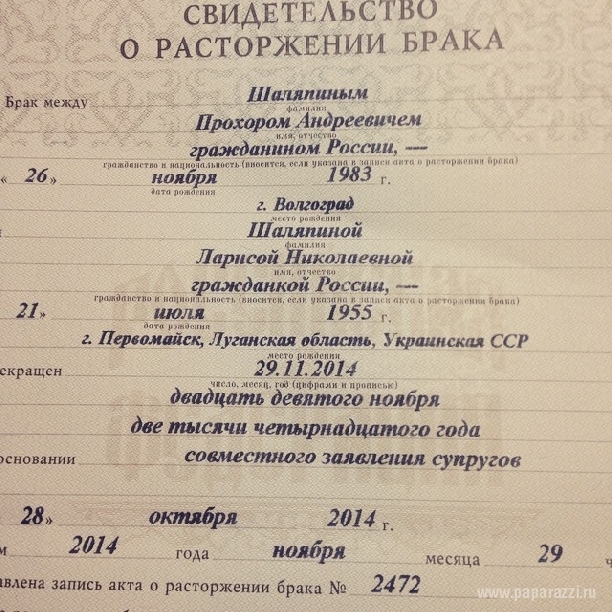 СВИДЕТЕЛЬСТВО
О РАСТОРЖЕНИИ БРАКА
Брак между Шаляпиным
фамилия
Прохором Андреевичем
имя, отчество
гражданином России, —
гражданство и национальность (вносится, если указана в записи акта о расторжении брака)
« 26 » ноября 1983 г.
дата рождения
г. Волгоград
место рождения
Шаляпиной
фамилия
Ларисой Николаевной
имя, отчество
гражданкой России, —
гражданство и национальность (вносится, если указана в записи акта о расторжении брака)
21 » июля 1955 г.
дата рождения
г. Первомайск, Луганская область, Украинская ССР
место рождения
екращен 29.11.2014
число, месяц, год (цифрами и прописью)
двадцать девятого ноября
две тысячи четырнадцатого года
основании совместного заявления супругов
28 » октября 2014 г.
м 2014 года ноября месяца 29 ч
авлена запись акта о расторжении брака № 2472
www.paparazzi.ru